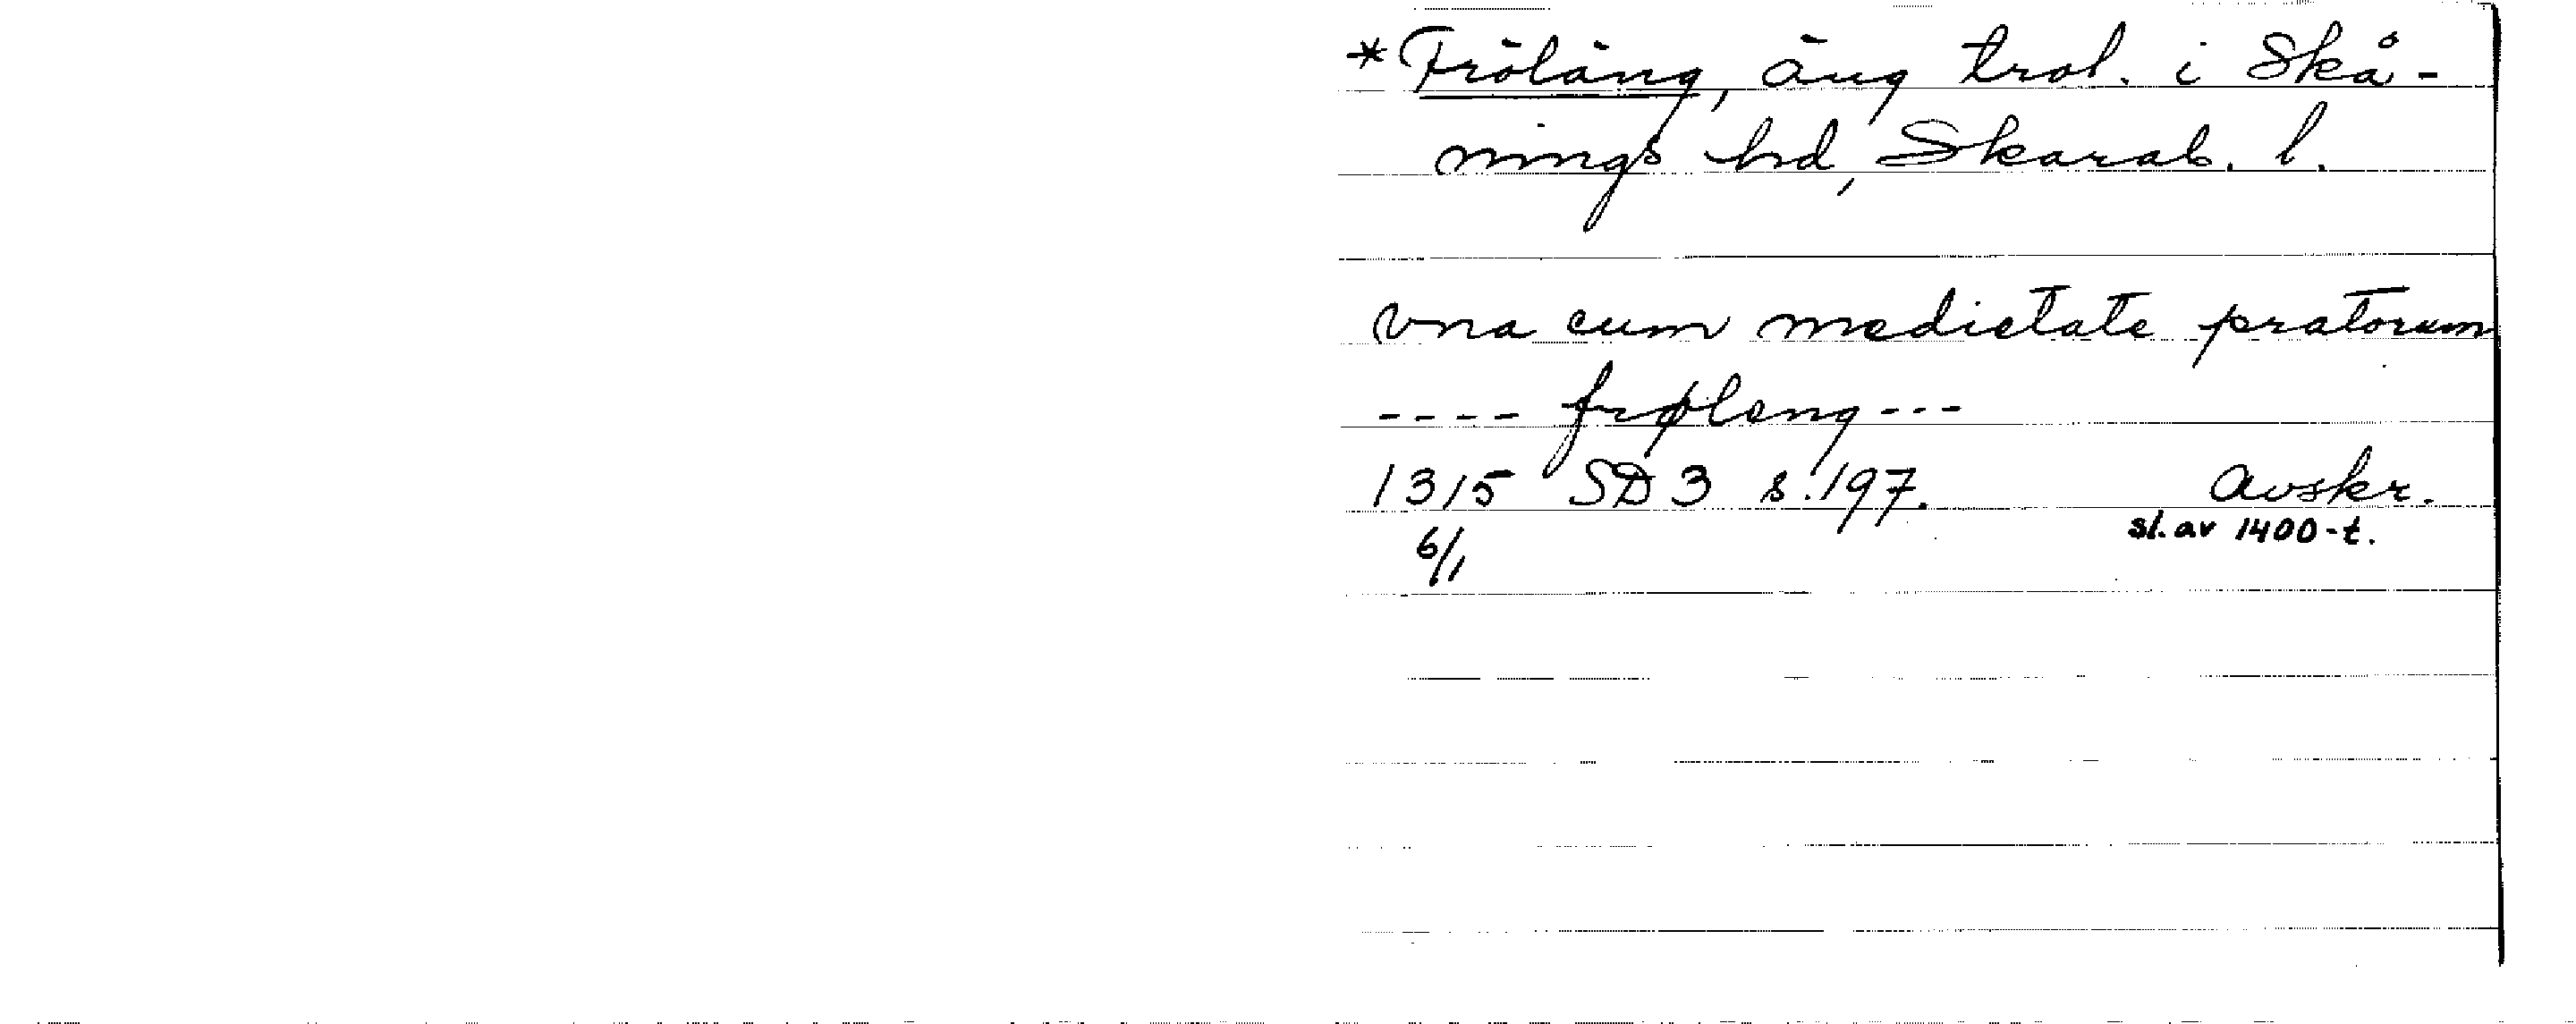 *Fröläng, äng trol. i Skå-
nings hd, Skarab. l.
vna cum medietate pratorum
---- frøleng ---
1315 SD 3 s. 197. Avskr.
6/1 sl. av 1400-t.